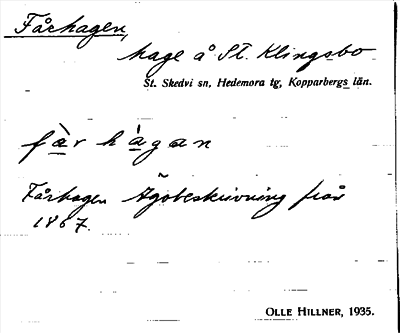 Fårhagen,
hage å St. Klingsbo
St. Skedvi sn, Hedemora tg, Kopparbergs län.
fàr hàgan
Fårhagen Ägobeskrivning från
1867.
OLLE HILLNER, 1935.